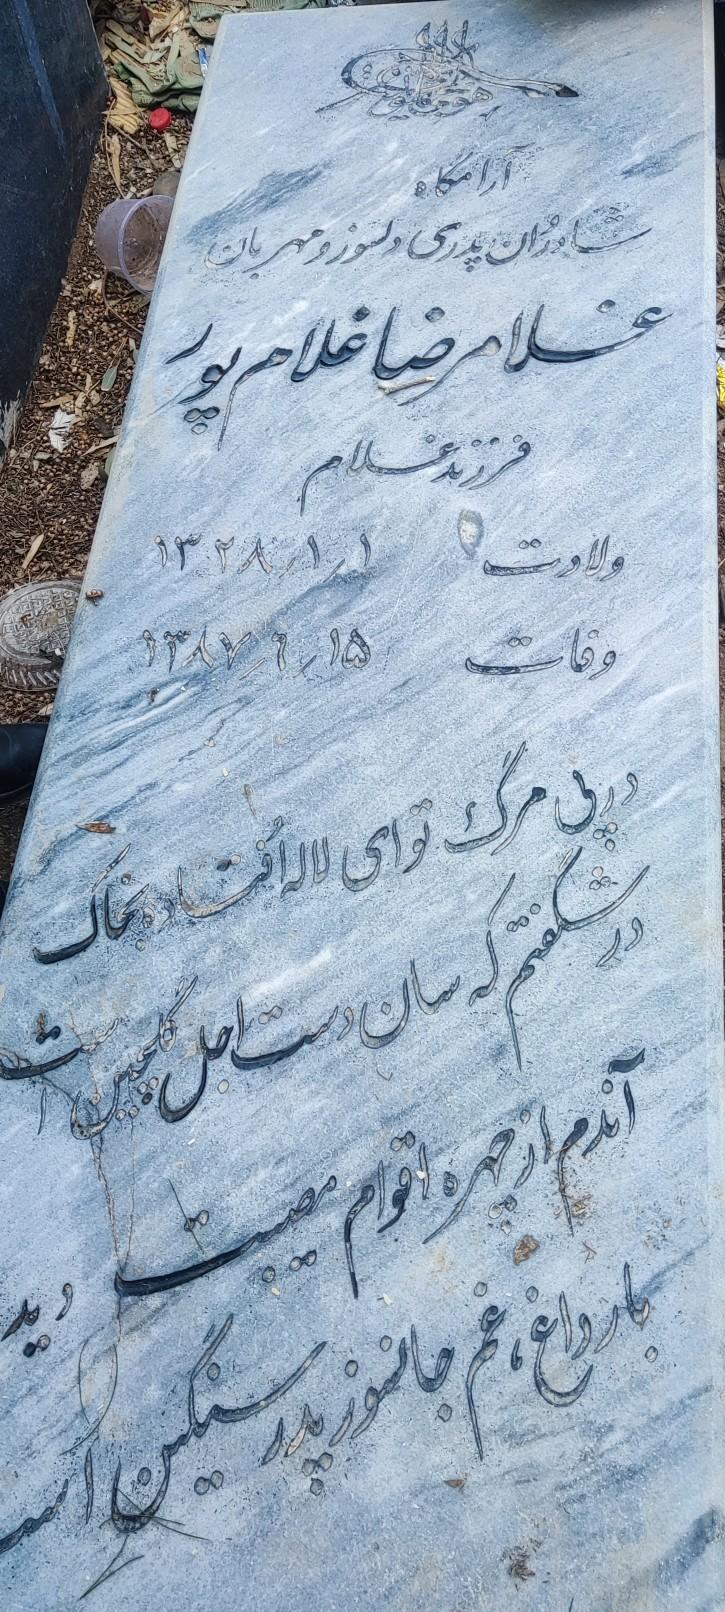 هو الباقی
آرامگاه
شادروان پدری دلسوز و مهربان
غلامرضا غلام پور
فرزند غلام
ولادت ۱۳۲۸/۱/۱
وفات ۱۳۸۷/۶/۱۵
در پی مرگ تو ای لاله اُفتاده بخاک
در شگفتم که سان دست اجل گلچین است
آندم از چهره اقوام مصیبت دید
بار داغ، غم جانسوز پدر سنگین است